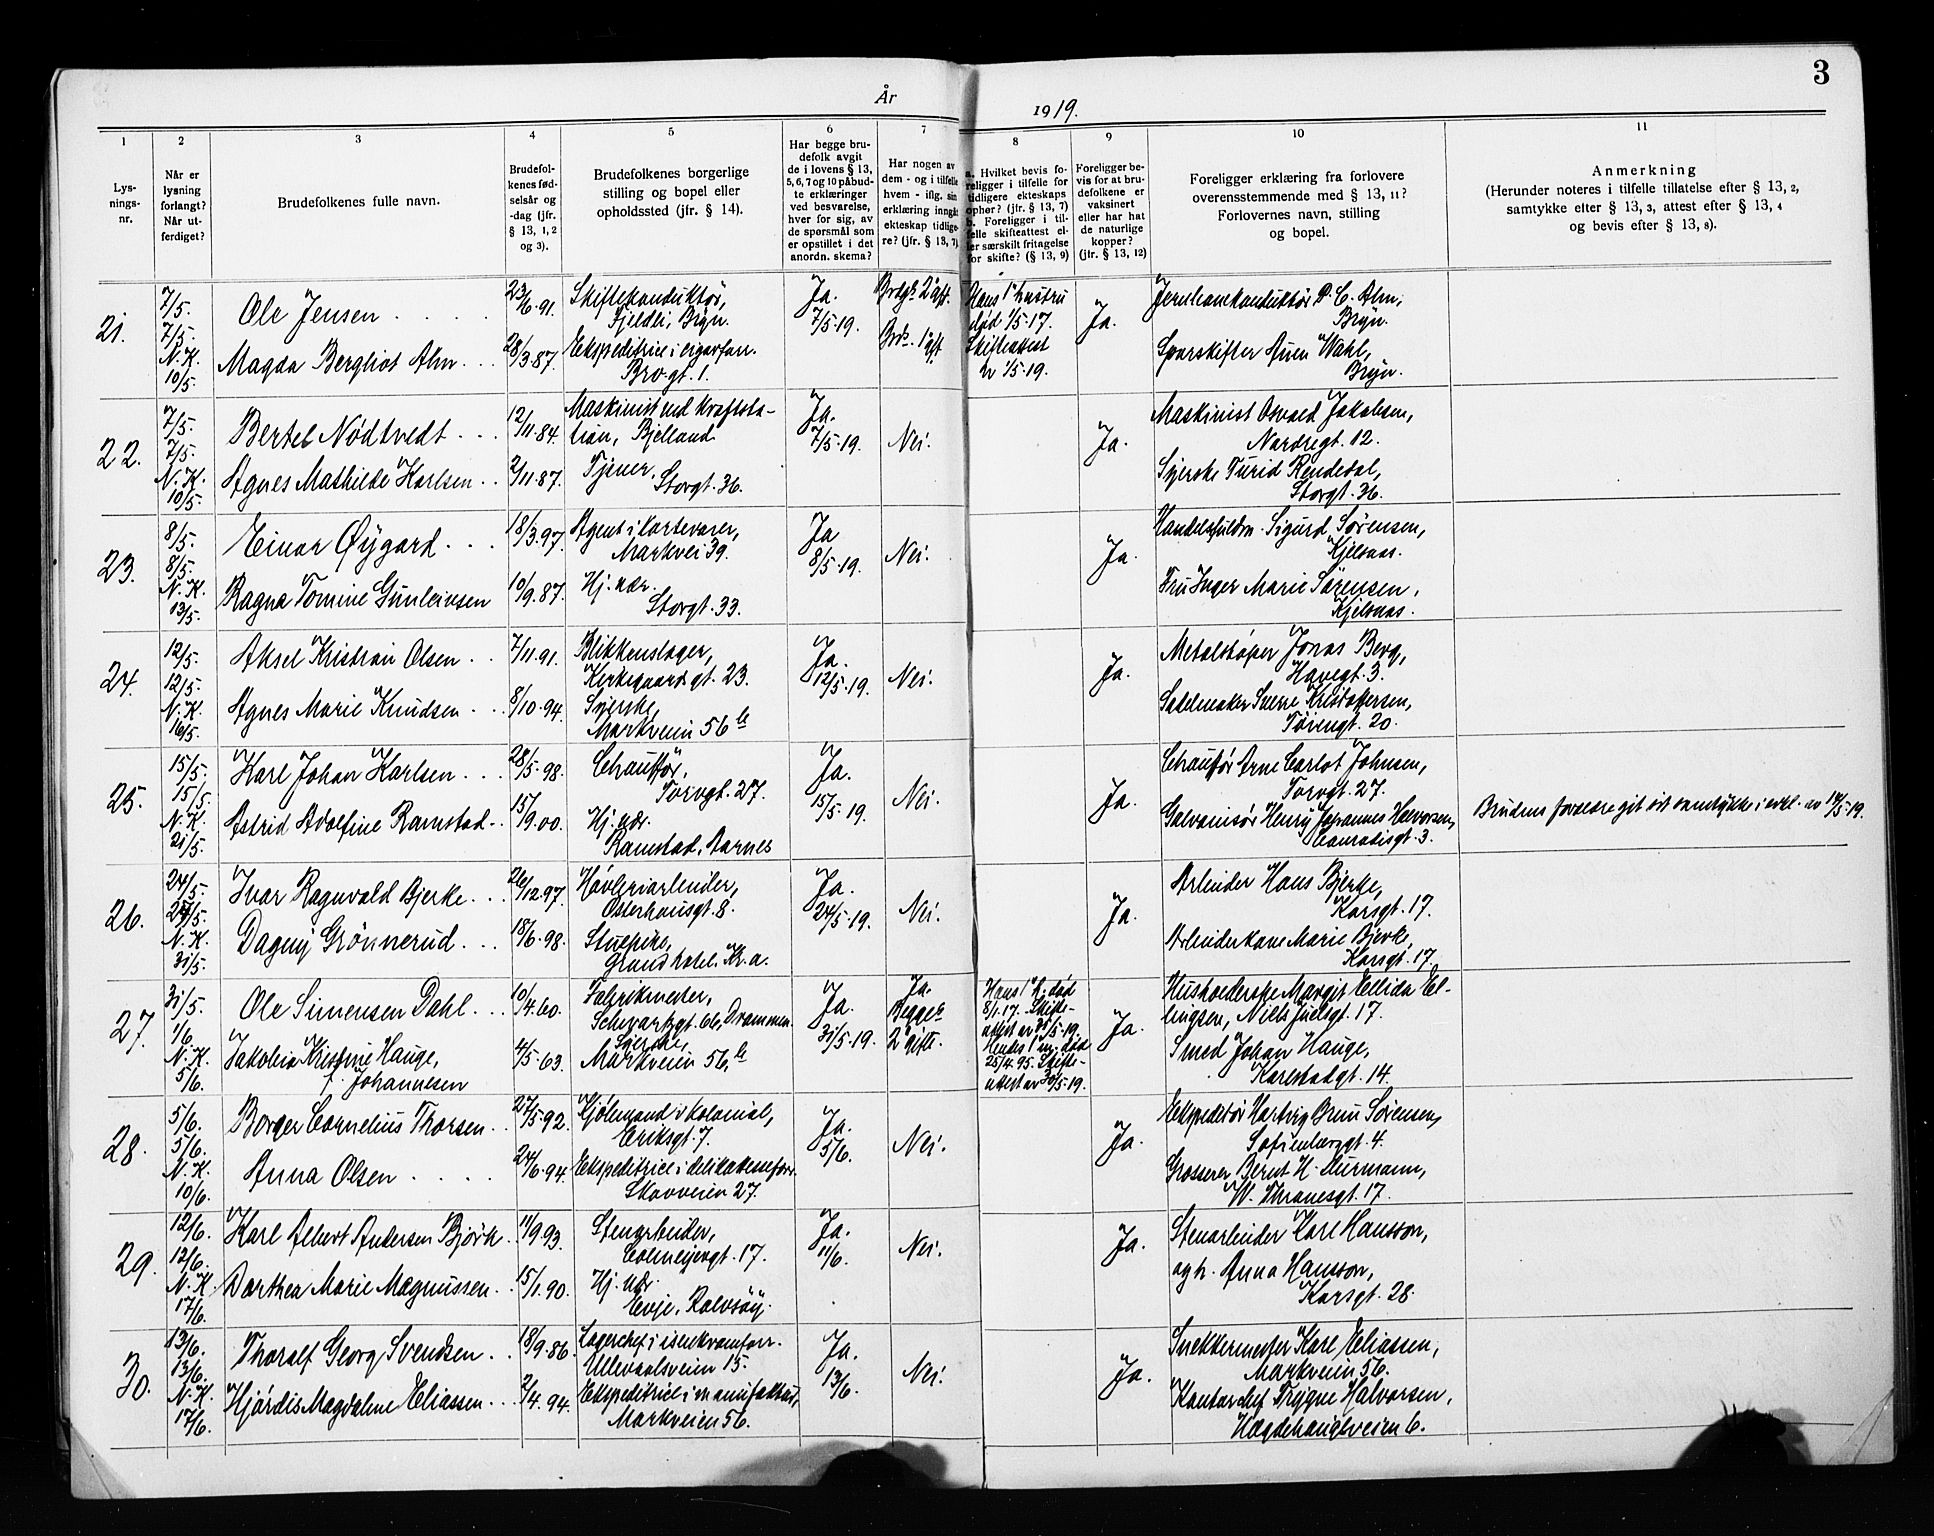 3
År 1919.
1 2 3 4 5 6 7 8 9 10 11
Lys-
nings-
nr.
Når er
lysning
forlangt?
Når ut-
ferdiget?
Brudefolkenes fulle navn.
Brudefol-
kenes fød-
selsår og
-dag (jfr.
§ 13, 1, 2
og 3).
Brudefolkenes borgerlige
stilling og bopel eller
opholdssted (jfr. § 14).
Har begge bru-
defolk avgit
de i lovens § 13,
5, 6, 7 og 10 påbud-
te erklæringer
ved besvarelse,
hver for sig, av
de spørsmål som
er opstillet i det
anordn. skema?
Har nogen av
dem - og i tilfelle
hvem - iflg. sin
erklæring inngåt
ekteskap tidlige-
re? (jfr. § 13, 7)
a. Hvilket bevis fo-
religger i tilfelle for
tidligere ekteskaps
opher? (jfr. § 13, 7)
b. Foreligger i til-
felle skifteattest el-
ler særskilt fritagelse
for skifte? (§ 13, 9)
Foreligger be-
vis for at bru-
defolkene er
vaksinert
eller har hat
de naturlige
kopper?
(jfr. § 13, 12)
Foreligger erklæring fra forlovere
overensstemmende med § 13, 11?
Forlovernes navn, stilling
og bopel.
Anmerkning
(Herunder noteres i tilfelle tillatelse efter § 13, 2,
samtykke efter § 13, 3, attest efter § 13, 4
og bevis efter § 13, 8).
21.
7/5.
7/5.
N.K.
10/5.
Ole Jensen
Magda Bergliot Alm
23/6.91.
28/3.87.
Skiftekonduktør,
Fjeldli, Bryn.
Ekspeditrice i cigarforr.
Brogt. 1.
Ja.
7/5.19.
Brdg. 2 gift.
Brd. 1 gift.
Hans 1ste hustru
død 1/5.17.
Skifteattest
av 1/5.19.
Ja.
Jernbanekonduktør P. C. Alm,
Bryn.
Sporskifter Wahl,
Bryn.
22.
7/5.
7/5.
N.K.
10/5.
Bertel Nödtvedt
Agnes Mathilde Karlsen
12/11.84.
2/11.87.
Maskinist ved Kraftsta-
tion, Bjelland
Tjener,
Storgt. 36.
Ja.
7/5.19.
Nei.
Ja.
Maskinist Osvald Jakobsen,
Nordregt. 12.
Syerske Turid Rendedal,
Storgt. 36.
23.
8/5.
8/5.
N.K.
13/5.
Einar Øygard
Ragna Tomine Gunleivsen
18/3.97.
10/9.87.
Agent i kortevarer,
Markvei 39.
Hj. vær.
Storgt. 33.
Ja
8/5.19.
Nei.
Ja.
Handelsfuldm. Sigurd Sørensen,
Kjelsaas.
Fru Inger Marie Sørensen,
Kjelsaas.
24.
12/5.
12/5.
N.K.
16/5.
Aksel Kristian Olsen
Agnes Marie Knudsen
7/11.91.
8/10.94.
Blikkenslager,
Kirkegaardsgt. 23.
Syerske,
Markveien 56 b
Ja.
12/5.19.
Nei.
Ja.
Metalstøper Jonas Berg,
Havegt. 3.
Salelmaker Sverre Kristoffersen,
Tøiengt. 20.
25.
15/5.
15/5.
N.K.
21/5.
Karl Johan Karlsen
Astrid Adolfine Ramstad
28/5.98.
15/9.00.
Chauffør,
Torvgt. 27.
Hj. vær.
Ramstad, Aarnes
Ja.
15/5.19.
Nei.
Ja.
Chauffør Arne Carlot Johnsen,
Torvgt. 27.
Galvanisør Henry Johannes Halvorsen,
Conradisgt. 3.
Brudens forældre git sit samtykke i erkl. av 14/5.19.
26.
24/5.
24/5.
N.K.
31/5.
Ivar Ragnvald Bjerke
Dagny Grönnerud
26/12.97.
18/6.98.
Høvleriarbeider,
Osterhausgt. 8.
Stuepike,
Grand hotel. Kr.a.
Ja.
24/5.19.
Nei.
Ja.
Arbeider Hans Bjerke,
Korsgt. 17.
Arbeiderkone Marie Bjerke,
Korsgt. 17.
27.
31/5.
1/6.
N.K.
5/6.
Ole Simensen Dahl
Jakobia Kristine Hauge,
f. Johannesen
10/4.60.
4/5.63.
Fabrikmester,
Schwartzgt. 66, Drammen.
Syerske,
Markveien 56 b
Ja.
31/5.19.
Ja.
Begge
2 gifte.
Hans 1ste h. død
8/1.17. Skifte-
attest av 21/5.19.
Hendes 1ste m. død
25/4.95. Skifte-
attest av 30/5.19.
Ja.
Husholderske Margit Ellida El-
lingsen, Niels Juelsgt. 17.
Smed Johan Hauge,
Karlstadgt. 14.
28.
5/6.
5/6.
N.K.
10/6.
Borger Cornelius Thorsen
Anna Olsen
27/5.92.
24/6.94.
Kjøbmand i kolonial,
Eriksgt. 7.
Ekspeditrice i delikatesseforr.
Skovveien 27.
Ja.
5/6.
Nei.
Ja.
Ekspeditør Hartvig Bruu Sørensen,
Sofienberggt. 4.
Grosserer Bernt H. Durmann,
W. Thranesgt. 17.
29.
12/6.
12/6.
N.K.
17/6.
Karl Albert Andersen Bjørk
Dorthea Marie Magnussen
11/9.93.
15/1.90.
Stenarbeider,
Colmeijergt. 17.
Hj. vær.
Evje, Rolvsøy.
Ja.
11/6.
Nei.
Ja.
Stenarbeider Karl Hansson,
og h. Anna Hansson,
Korsgt. 28.
30.
13/6.
13/6.
N.K.
17/6.
Thoralf Georg Svendsen
Hjördis Magdalene Eliassen
18/9.86.
2/4.94.
Lagerchef i isenkramforr.
Ullevaalsveien 15.
Ekspeditrice i manufaktur,
Markveien 56.
Ja.
13/6.
Nei.
Ja.
Snekkermester Karl Eliassen,
Markveien 56.
Kontorchef Trygve Halvorsen,
Hægdehaugsveien 6.